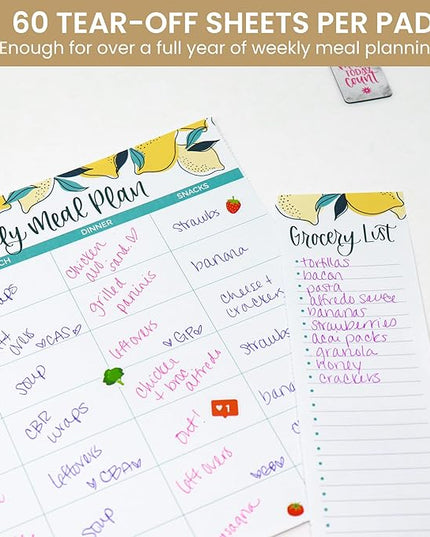 60 TEAR-OFF SHEETS PER PAD
Enough for over a full year of weekly meal plannin
TODAY
count
ly Meal Plan
CH
DINNER
SNACKS
aps
chicken
avo
sand. ♡
straubs
ft
overs
♡CAS♡
grilled
paninis
banana
soup
leftovers
♡GP♡
cheese +
crackers
CBR
wraps
chicken
+ broc
alfredo
straubs
leftovers
♡CBA♡
out!
1
bana
soup
leftovers
Grocery List
tortillas
bacon
pasta
alfredo sauce
bananas
strawberries
acai packs
granola
honey
crackers